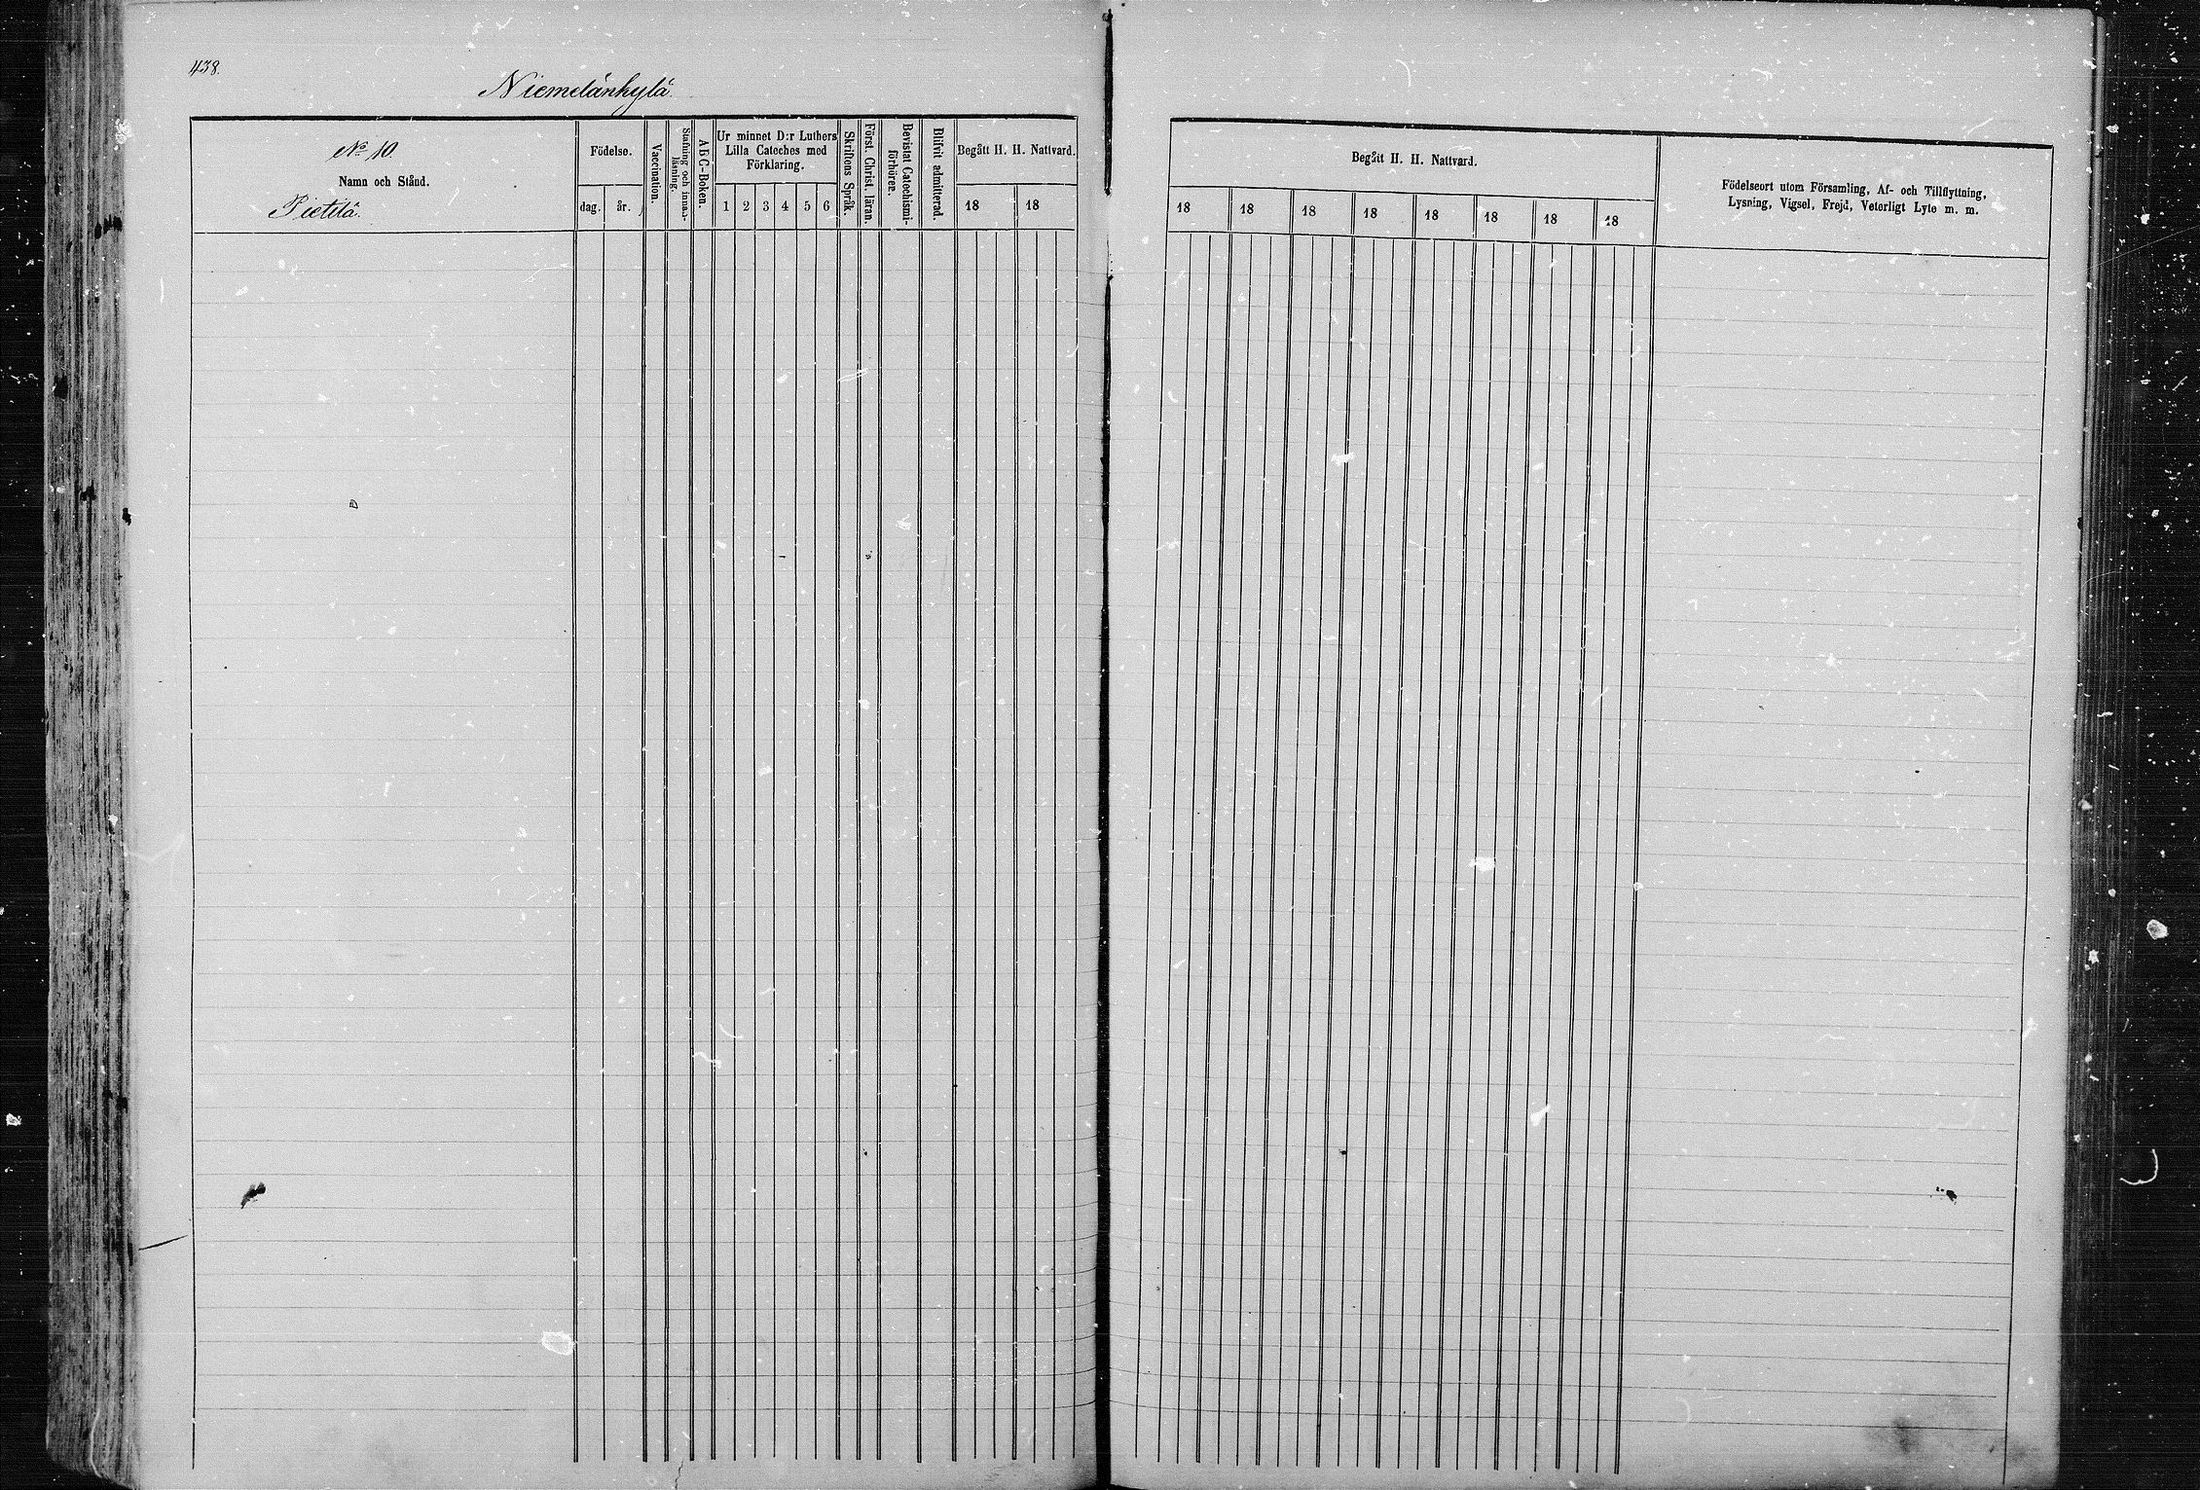 438.
Niemelänkylä.
No 10.
Namn och Stånd.
Pietilä.
Födelse.
dag.
år.
Vaccination.
Stafning och innan-
läsning.
ABC-Boken.
Ur minnet D:r Luthers
Lilla Cateches med
Förklaring.
1 2 3 4 5 6
Skriftens Språk.
Först. Christ. läran.
Bevistat Catechismi-
förhören.
Blifvit admitterad.
Begått H. H. Nattvard.
18 18
Begått H. H. Nattvard.
18 18 18 18 18 18 18 18
Födelseort utom Församling, Af- och Tillflyttning,
Lysning, Vigsel, Frejd, Veterligt Lyte m. m.